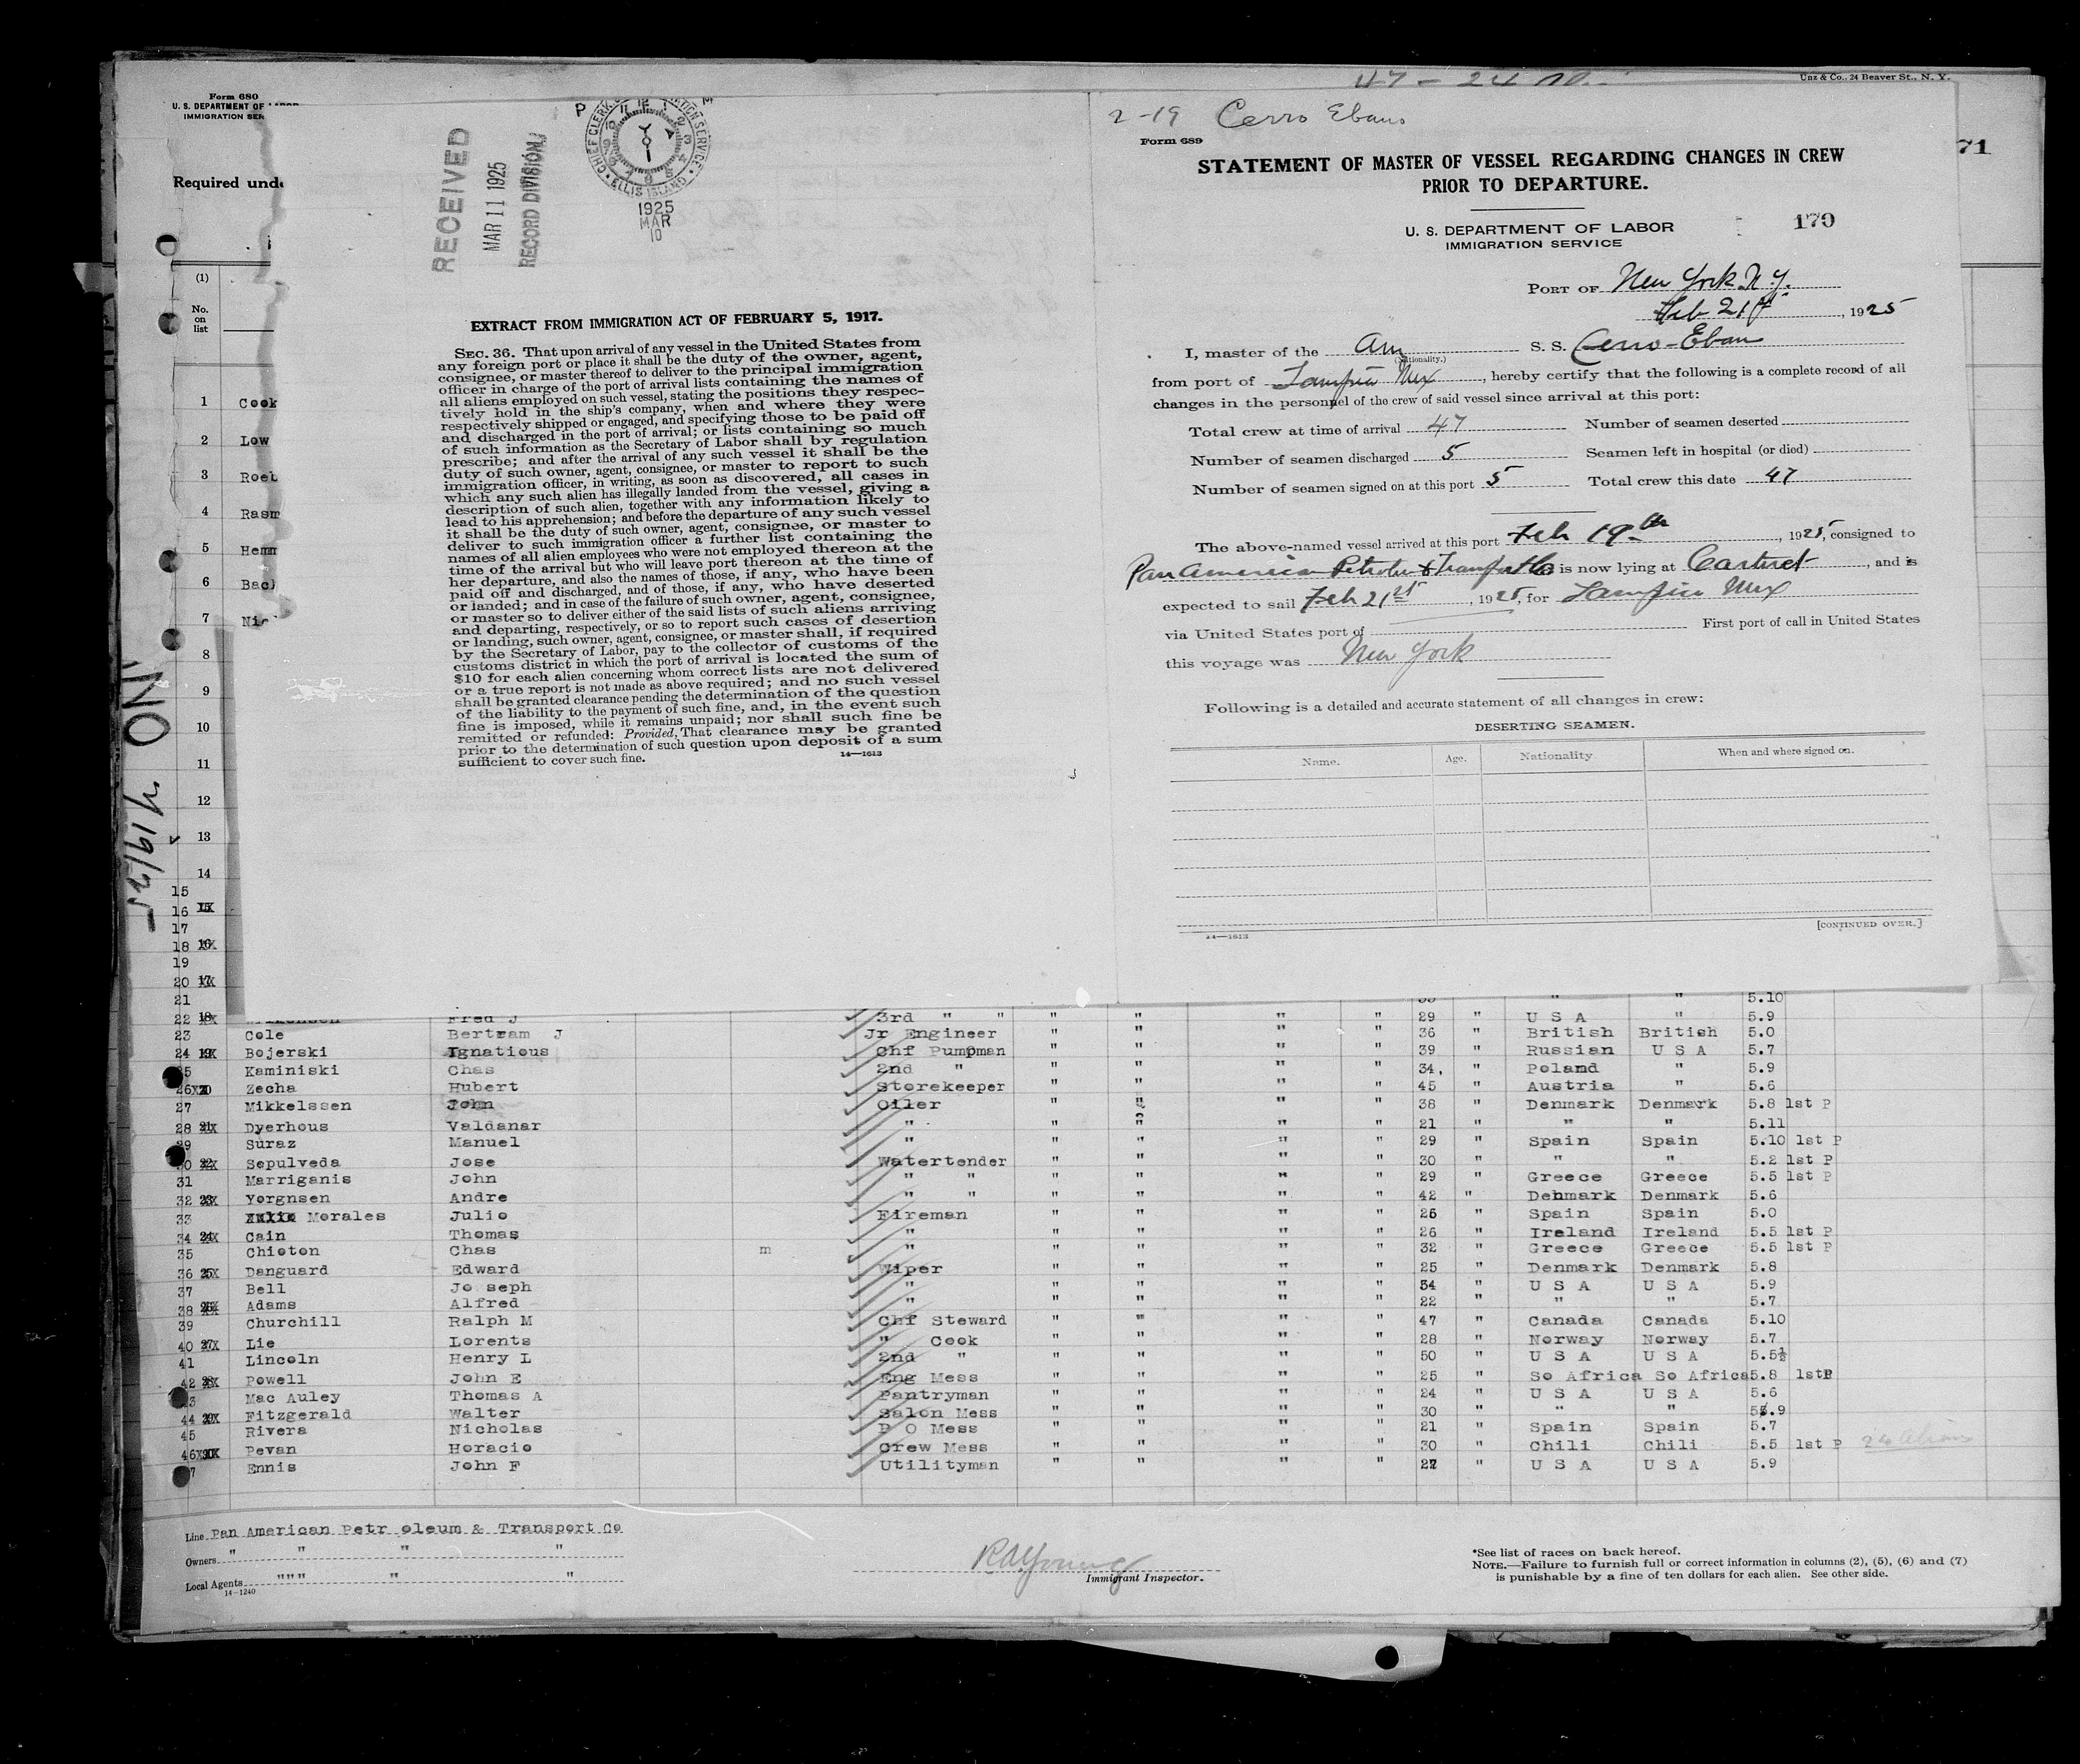 47 - 24
Unz & Co., 24 Beaver St., N. Y.
Form 680
U. S. DEPARTMENT OF LABOR
IMMIGRATION SER
Required unde
71
(1)
No.
on
list
1 Cook
2 Low
3 Roet
4 Rasm
5 Hemm
6 Bac
7 Nic
8
9
10
11
12
13
14
RECEIVED
MAR 11 1925
RECORD DIVISION
CHIEF CLERK
ELLIS ISLAND
1925
MAR
10
EXTRACT FROM IMMIGRATION ACT OF FEBRUARY 5, 1917.
SEC. 36. That upon arrival of any vessel in the United States from
any foreign port or place it shall be the duty of the owner, agent,
consignee, or master thereof to deliver to the principal immigration
officer in charge of the port of arrival lists containing the names of
all aliens employed on such vessel, stating the positions they respec-
tively hold in the ship's company, when and where they were
respectively shipped or engaged, and specifying those to be paid off
and discharged in the port of arrival; or lists containing so much
of such information as the Secretary of Labor shall by regulation
prescribe; and after the arrival of any such vessel it shall be the
duty of such owner, agent, consignee, or master to report to such
immigration officer, in writing, as soon as discovered, all cases in
which any such alien has illegally landed from the vessel, giving a
description of such alien, together with any information likely to
lead to his apprehension; and before the departure of any such vessel
it shall be the duty of such owner, agent, consignee, or master to
deliver to such immigration officer a further list containing the
names of all alien employees who were not employed thereon at the
time of the arrival but who will leave port thereon at the time of
her departure, and also the names of those, if any, who have been
paid off and discharged, and of those, if any, who have deserted
or landed; and in case of the failure of such owner, agent, consignee,
or master so to deliver either of the said lists of such aliens arriving
and departing, respectively, or so to report such cases of desertion
or landing, such owner, agent, consignee, or master shall, if required
by the Secretary of Labor, pay to the collector of customs of the
customs district in which the port of arrival is located the sum of
$10 for each alien concerning whom correct lists are not delivered
or a true report is not made as above required; and no such vessel
shall be granted clearance pending the determination of the question
of the liability to the payment of such fine, and, in the event such
fine is imposed, while it remains unpaid; nor shall such fine be
remitted or refunded: Provided, That clearance may be granted
prior to the determination of such question upon deposit of a sum
sufficient to cover such fine. 14—1613
2-19 Cerro Ebano
Form 689
STATEMENT OF MASTER OF VESSEL REGARDING CHANGES IN CREW
PRIOR TO DEPARTURE.
U. S. DEPARTMENT OF LABOR
IMMIGRATION SERVICE
170
PORT OF New York N.Y.
Feb 21st, 1925
I, master of the Am S. S. Cerro-Ebano
(Nationality.)
from port of Tampico Mex, hereby certify that the following is a complete record of all
changes in the personnel of the crew of said vessel since arrival at this port:
Total crew at time of arrival 47 Number of seamen deserted
Number of seamen discharged 5 Seamen left in hospital (or died)
Number of seamen signed on at this port 5 Total crew this date 47
The above-named vessel arrived at this port Feb 19th, 1925, consigned to
Pan American Petrolm & Transpt Co is now lying at Carteret, and is
expected to sail Feb 21st, 1925, for Tampico Mex
via United States port of First port of call in United States
this voyage was New York
Following is a detailed and accurate statement of all changes in crew:
DESERTING SEAMEN.
Name. Age. Nationality When and where signed on.
14—1613 [CONTINUED OVER.]
15
16
17
18
19
20
21 " " 5.10
22 Fred J 3rd " " " " " " 29 " U S A " 5.9
23 Cole Bertram J Jr Engineer " " " " 36 " British British 5.0
24 Bojerski Ignatious Chf Pumpman " " " " 39 " Russian U S A 5.7
25 Kaminiski Chas 2nd " " " " " 34, " Poland " 5.9
26 Zecha Hubert Storekeeper " " " " 45 " Austria " 5.6
27 Mikkelssen John Oiler " " " " 38 " Denmark Denmark 5.8 1st P
28 Dyerhous Valdanar " " " " " 21 " " " 5.11
29 Suraz Manuel " " " " " 29 " Spain Spain 5.10 1st P
30 Sepulveda Jose Watertender " " " " 30 " " " 5.2 1st P
31 Marriganis John " " " " " " 29 " Greece Greece 5.5 1st P
32 Yorgnsen Andre " " " " " " 42 " Denmark Denmark 5.6
33 Morales Julio Fireman " " " " 26 " Spain Spain 5.0
34 Cain Thomas " " " " " 26 " Ireland Ireland 5.5 1st P
35 Chioton Chas m " " " " " 32 " Greece Greece 5.5 1st P
36 Danguard Edward Wiper " " " " 25 " Denmark Denmark 5.8
37 Bell Jo seph " " " " " 34 " U S A U S A 5.9
38 Adams Alfred " " " " " 22 " " " 5.7
39 Churchill Ralph M Chf Steward " " " " 47 " Canada Canada 5.10
40 Lie Lorents " Cook " " " " 28 " Norway Norway 5.7
41 Lincoln Henry L 2nd " " " " " 50 " U S A U S A 5.5½
42 Powell John E Eng Mess " " " " 25 " So Africa So Africa 5.8 1stP
43 Mac Auley Thomas A Pantryman " " " " 24 " U S A U S A 5.6
44 Fitzgerald Walter Salon Mess " " " " 30 " " " 5.9
45 Rivera Nicholas P O Mess " " " " 21 " Spain Spain 5.7
46 Pevan Horacio Crew Mess " " " " 30 " Chili Chili 5.5 1st P 24 Aliens
7 Ennis John F Utilityman " " " " 27 " U S A U S A 5.9
Line Pan American Petr oleum & Transport Co
Owners " " " "
Local Agents """ " "
14-1240
RA Young
Immigrant Inspector.
*See list of races on back hereof.
NOTE.—Failure to furnish full or correct information in columns (2), (5), (6) and (7)
is punishable by a fine of ten dollars for each alien. See other side.